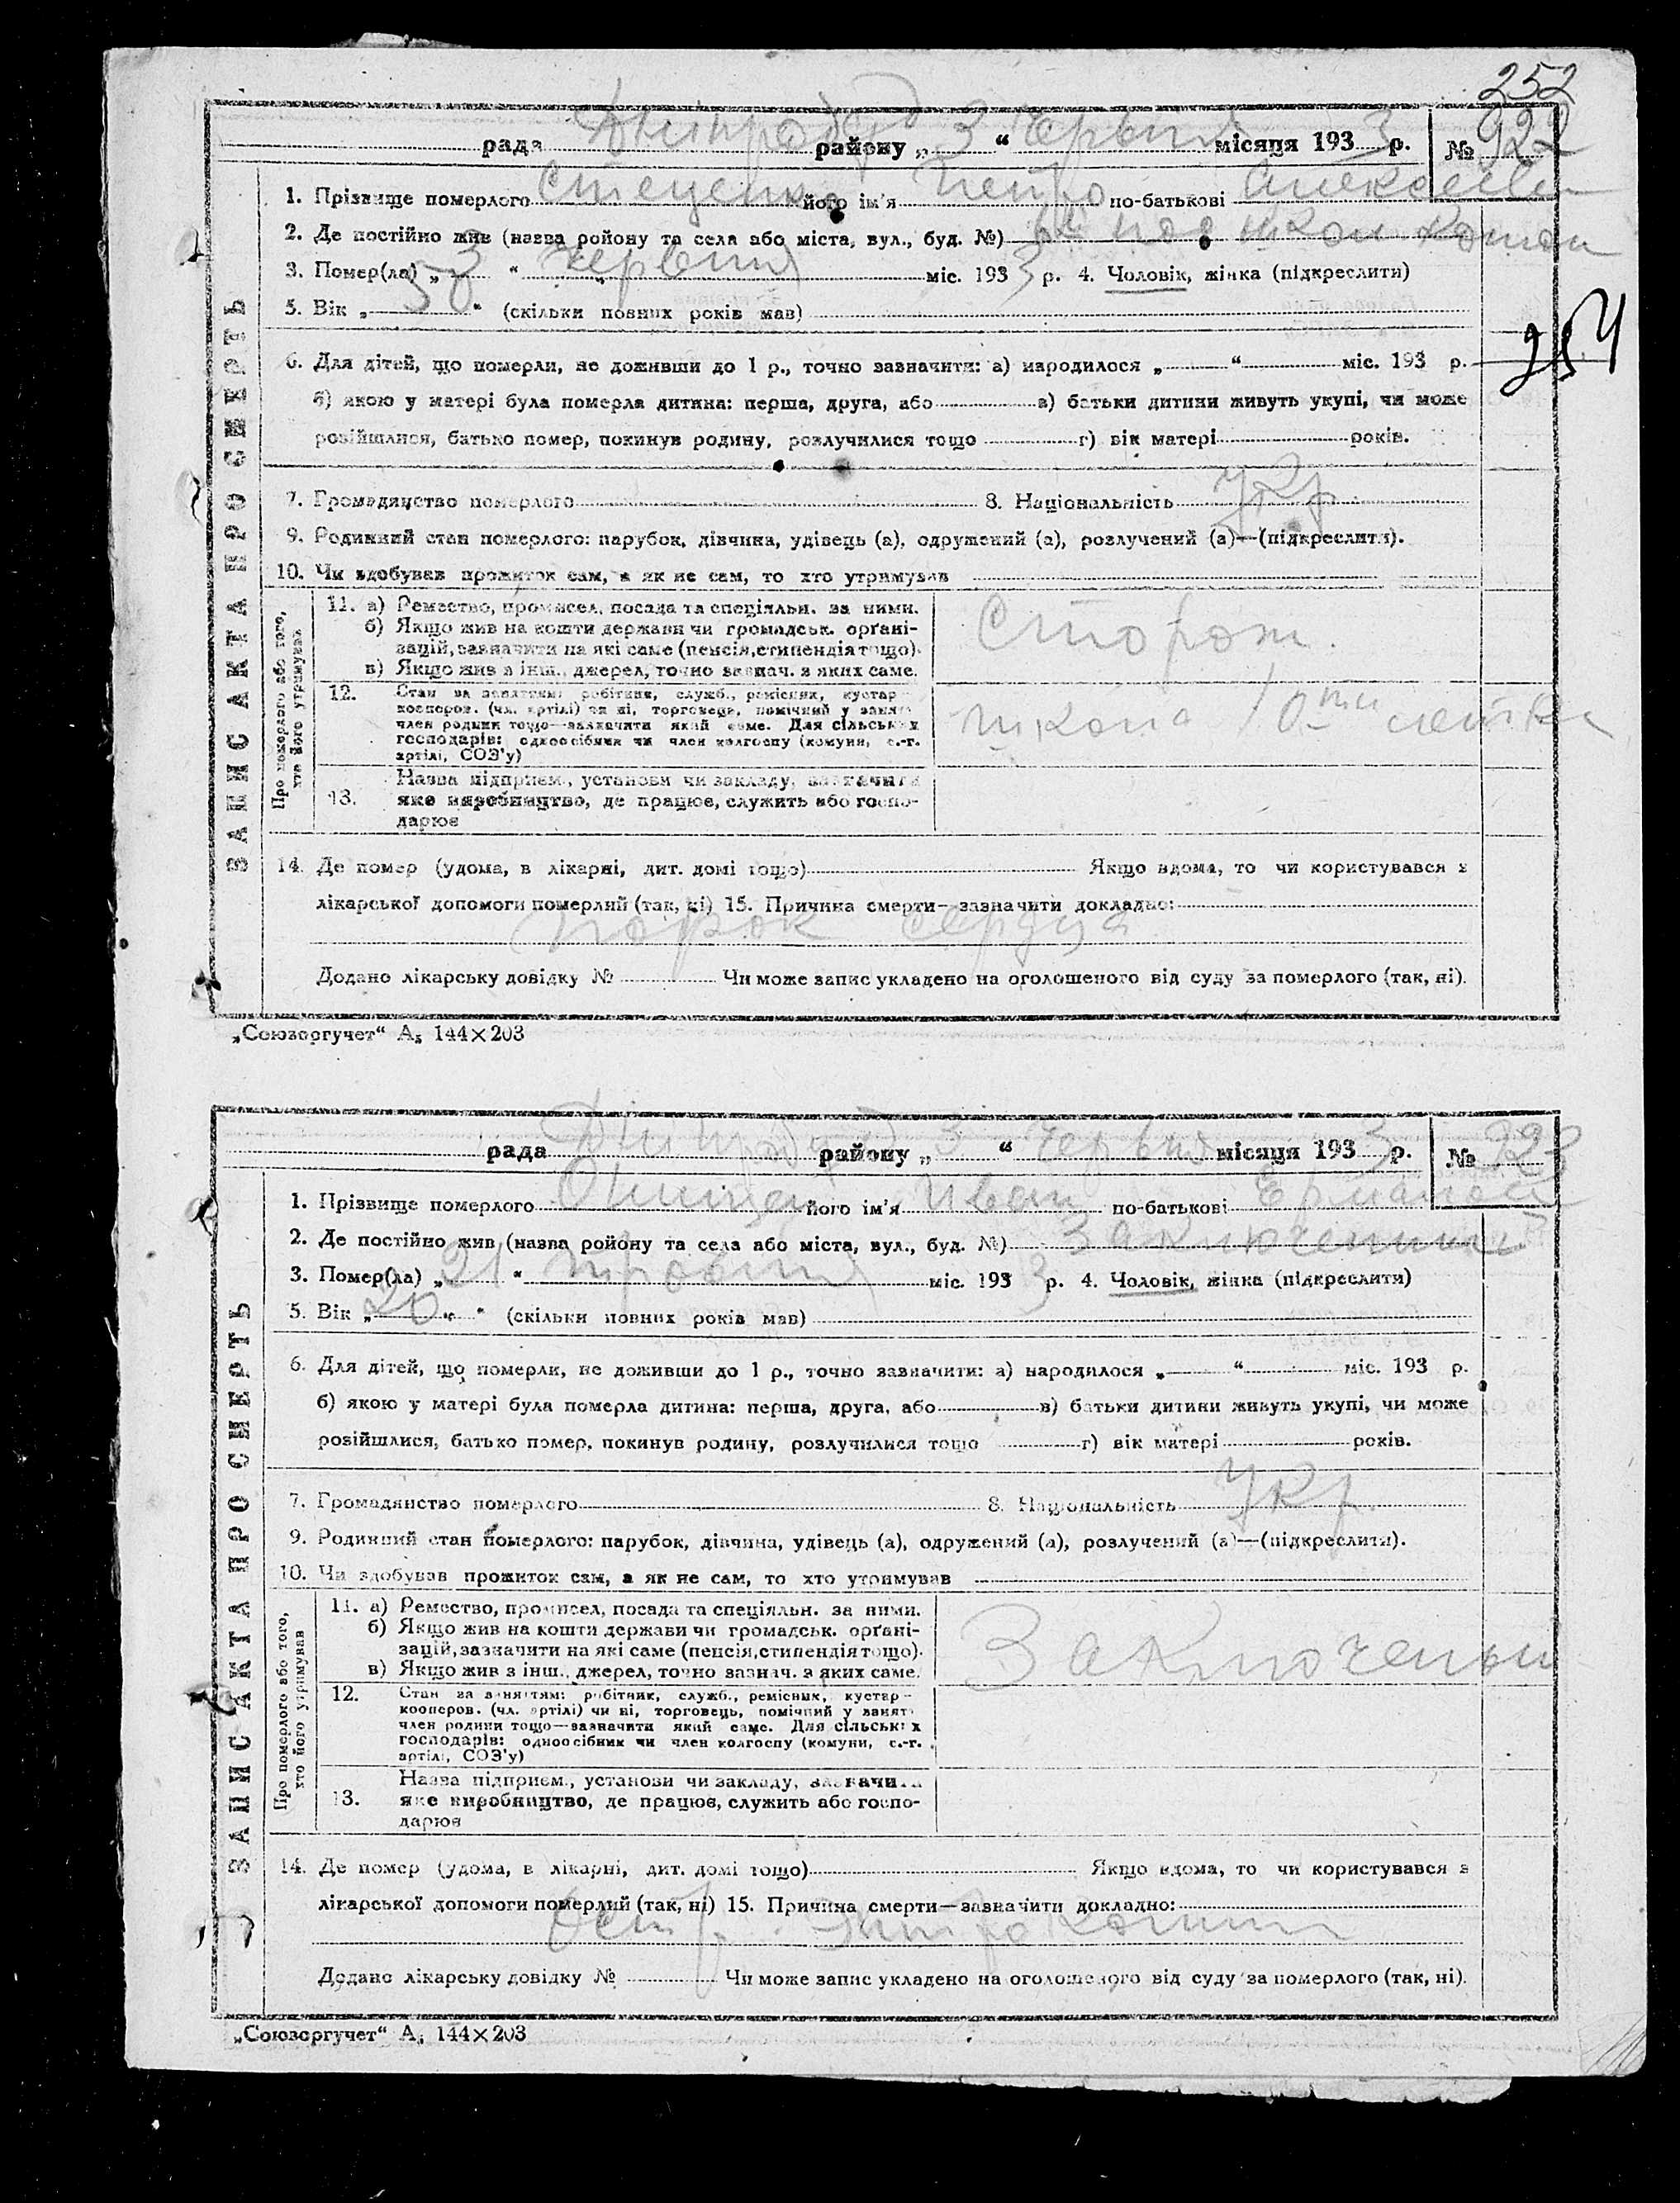 252
рада Днипробуд району „ 3 “ Червня місяця 1933 р. № 922
1. Прізвище померлого Стеценко його ім'я Петро по-батькові Алексеев
2. Де постійно жив (назва ройону та села або міста, вул., буд. №)
3. Помер(ла) „ 3 “ червня міс. 1933 р. 4. Чоловік, жінка (підкреслити)
5. Вік „ “ (скільки повних років мав)
254
6. Для дітей, що померли, не доживши до 1 р., точно зазначити: а) народилося „ “ міс. 193 р.
б) якою у матері була померла дитина: перша, друга, або в) батьки дитини живуть укупі, чи може
розійшлися, батько помер, покинув родину, розлучилися тощо г) вік матері років.
7. Громадянство померлого 8. Національність Укр
9. Родинний стан померлого: парубок, дівчина, удівець (а), одружений (а), розлучений (а)—(підкреслити).
10. Чи здобував прожиток сам, а як не сам, то хто утримував
ЗАПИС АКТА ПРО СМЕРТЬ
Про померлого або того, хто його утримував
11. а) Ремество, промисел, посада та спеціяльн. за ними. Сторож.
б) Якщо жив на кошти держави чи громадськ. орґані-
зацій, зазначити на які саме (пенсія, стипендія тощо).
в) Якщо жив з інш., джерел, точно зазнач. з яких саме.
12. Стан за заняттям: робітник, служб., ремісник, кустар— школа 10ти летка
кооперов. (чл. артілі) чи ні, торговець, помічний у занятт
член родини тощо—зазначити який саме. Для сільських
господарів: одноосібник чи член колгоспу (комуни, с.-г.
артілі, СОЗ'у)
13. Назва підприєм., установи чи закладу, зазначити
яке виробництво, де працює, служить або госпо-
дарює
14. Де помер (удома, в лікарні, дит. домі тощо) Якщо вдома, то чи користувався з
лікарської допомоги померлий (так, ні) 15. Причина смерти—зазначити докладно:
порок сердца
Додано лікарську довідку № Чи може запис укладено на оголошеного від суду за померлого (так, ні).
„Союзоргучет“ А5 144×203
рада Днипробуд району „ 3 “ червня місяця 1933 р. № 923
1. Прізвище померлого його ім'я Иван по-батькові
2. Де постійно жив (назва ройону та села або міста, вул., буд. №) Заключенный
3. Помер(ла) „ 21 “ травня міс. 1933 р. 4. Чоловік, жінка (підкреслити)
5. Вік „ 20 “ (скільки повних років мав)
6. Для дітей, що померли, не доживши до 1 р., точно зазначити: а) народилося „ “ міс. 193 р.
б) якою у матері була померла дитина: перша, друга, або в) батьки дитини живуть укупі, чи може
розійшлися, батько помер, покинув родину, розлучилися тощо г) вік матері років.
7. Громадянство померлого 8. Національність Укр.
9. Родинний стан померлого: парубок, дівчина, удівець (а), одружений (а), розлучений (а)—(підкреслити).
10. Чи здобував прожиток сам, а як не сам, то хто утримував
ЗАПИС АКТА ПРО СМЕРТЬ
Про померлого або того, хто його утримував
11. а) Ремество, промисел, посада та спеціяльн. за ними. Заключеный
б) Якщо жив на кошти держави чи громадськ. орґані-
зацій, зазначити на які саме (пенсія, стипендія тощо).
в) Якщо жив з інш., джерел, точно зазнач. з яких саме.
12. Стан за заняттям: робітник, служб., ремісник, кустар—
кооперов. (чл. артілі) чи ні, торговець, помічний у занятт
член родини тощо—зазначити який саме. Для сільських
господарів: одноосібник чи член колгоспу (комуни, с.-г.
артілі, СОЗ'у)
13. Назва підприєм., установи чи закладу, зазначити
яке виробництво, де працює, служить або госпо-
дарює
14. Де помер (удома, в лікарні, дит. домі тощо) Якщо вдома, то чи користувався з
лікарської допомоги померлий (так, ні) 15. Причина смерти—зазначити докладно:
Остр. Энтроколит
Додано лікарську довідку № Чи може запис укладено на оголошеного від суду за померлого (так, ні).
„Союзоргучет“ А5 144×203